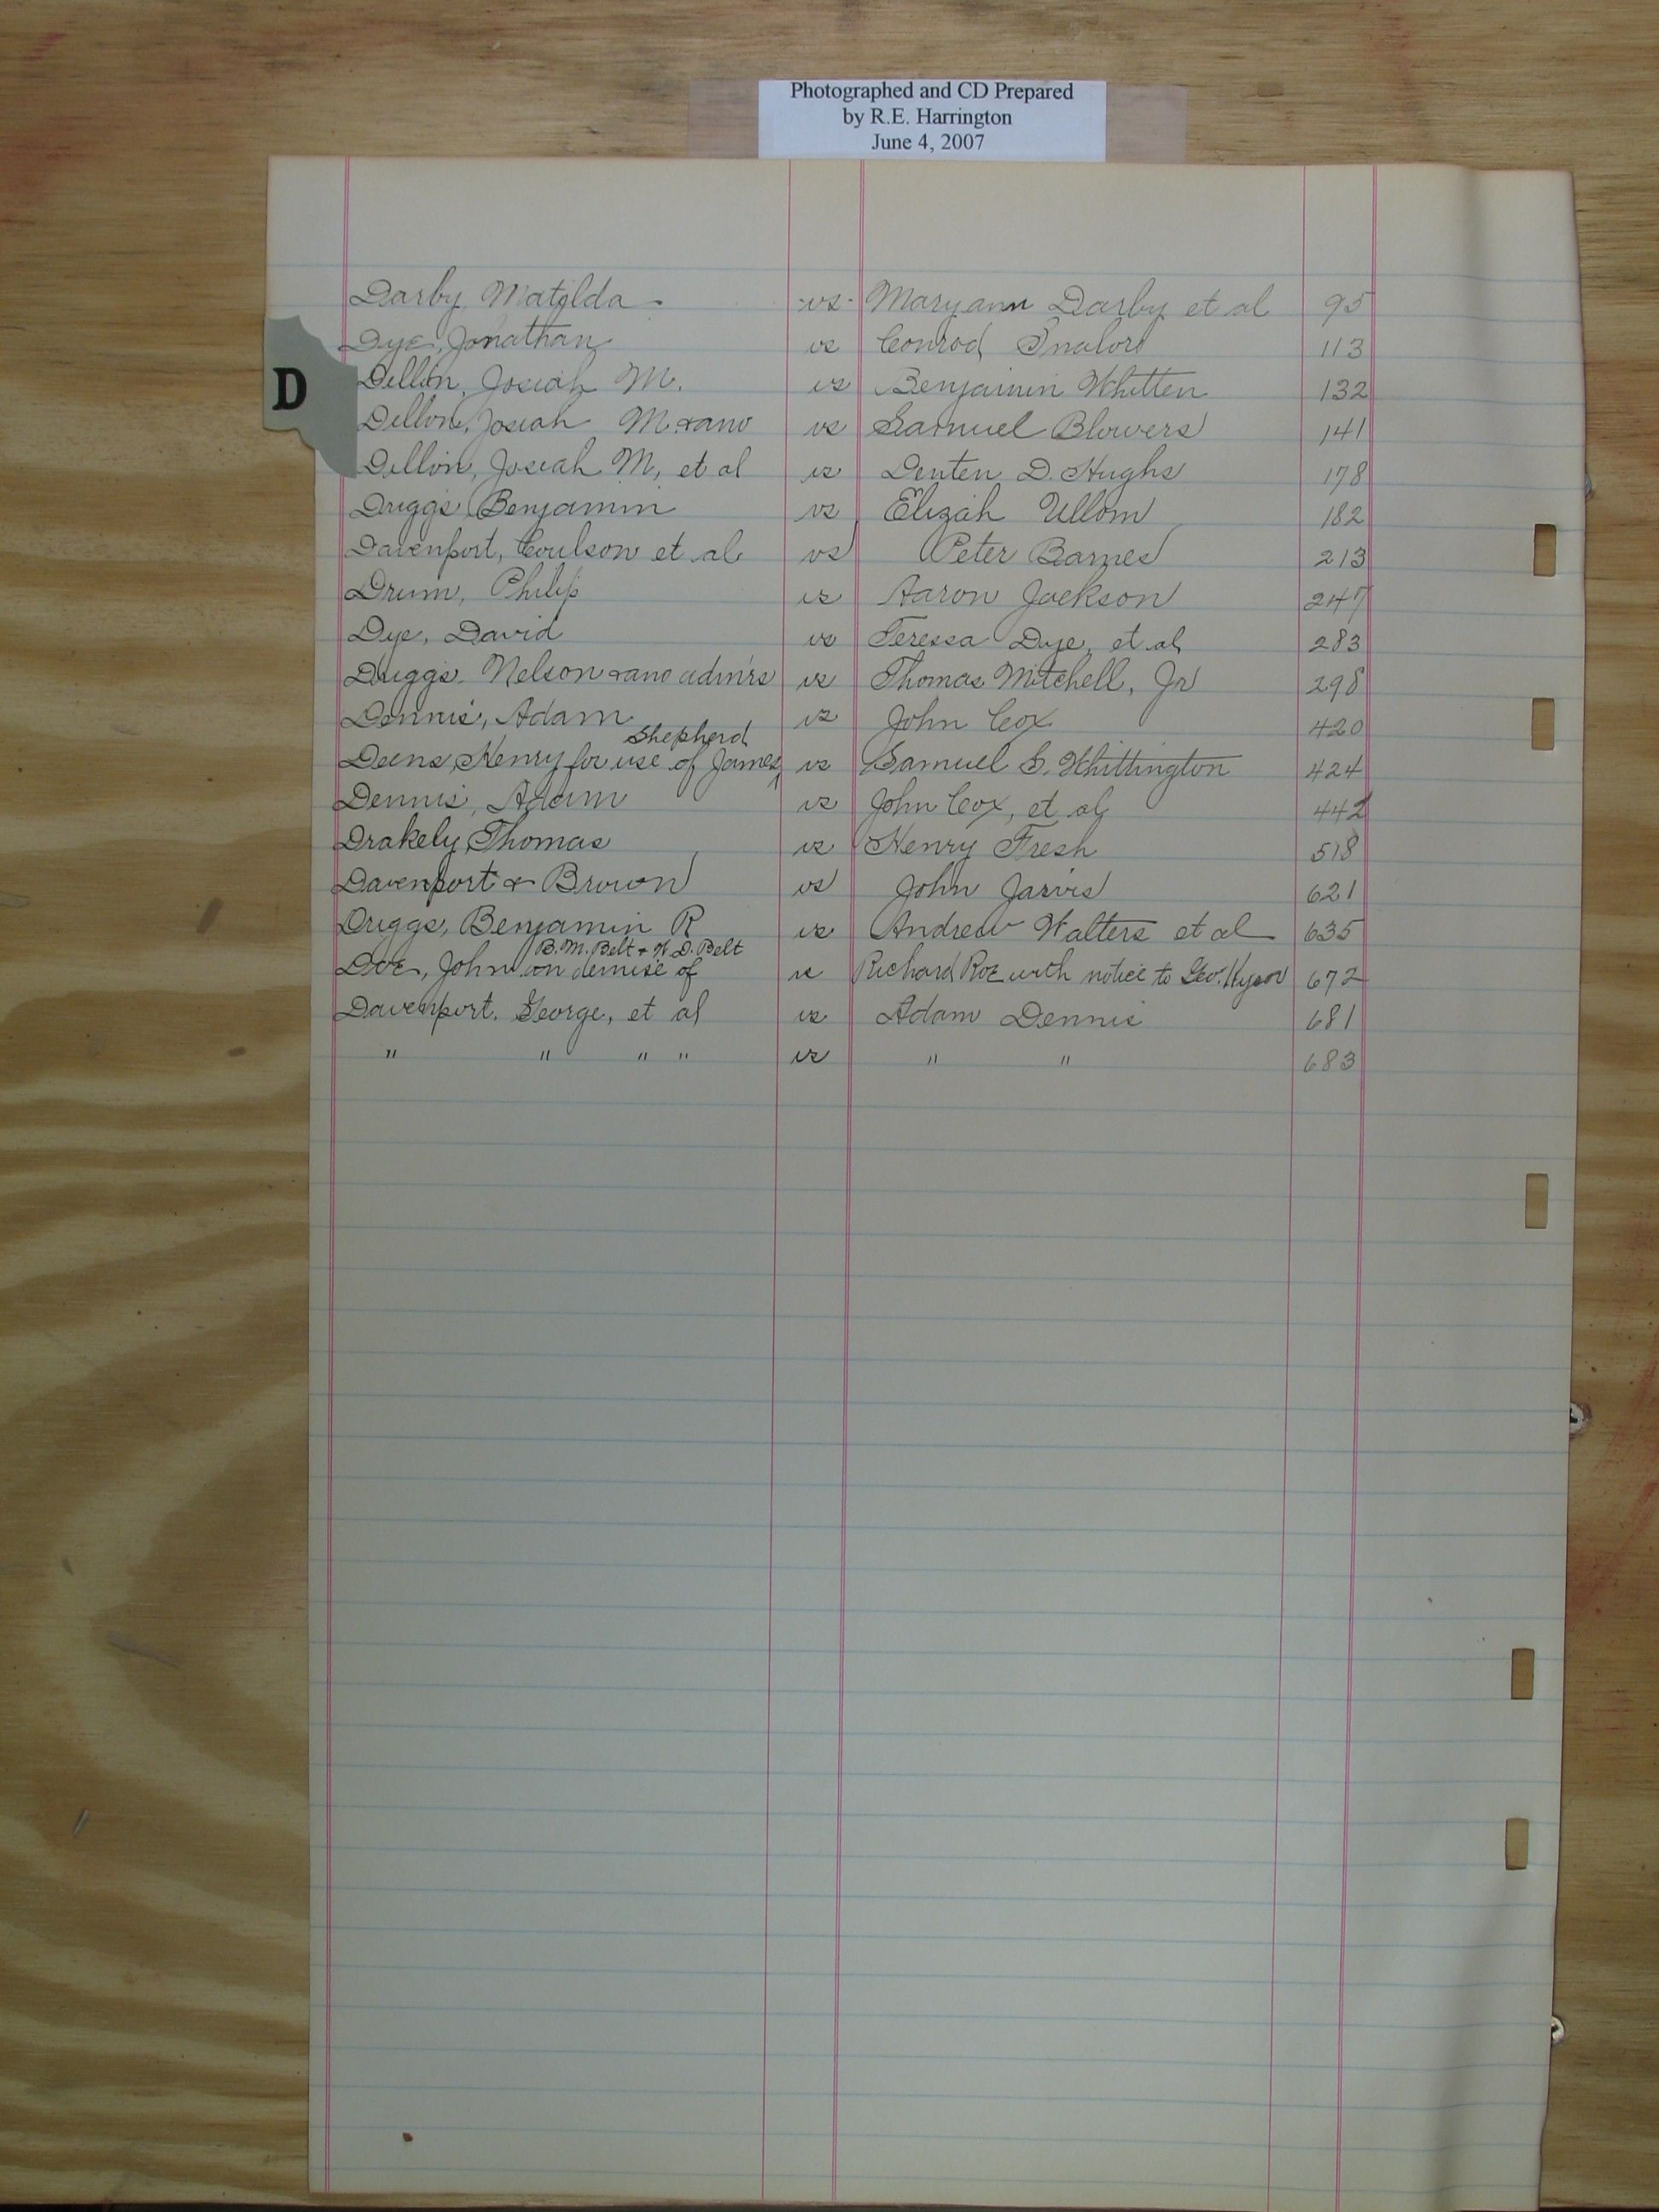 Photographed and CD Prepared
by R.E. Harrington
June 4, 2007
Darby, Matilda vs Maryann Darby et al 95
D
Dye, Jonathan vs Conrod 113
Dillon, Josiah M. vs Benjamin Whitten 132
Dillon, Josiah M. & ano vs Samuel Blowers 141
Dillon, Josiah M, et al vs Denten D. Hughs 178
Driggs, Benjamin vs Elizah Ullom 182
Davenport, Coulson et al vs Peter Barnes 213
Drum, Philip vs Aaron Jackson 247
Dye, David vs Teressa Dye, et al 283
Driggs, Nelson & ano adm'rs vs Thomas Mitchell, Jr 298
Dennis, Adam vs John Cox 420
Shepherd
Deens, Henry for use of James vs Samuel S. Whittington 424
Dennis, Adam vs John Cox, et al 442
Drakely, Thomas vs Henry Fresh 518
Davenport & Brown vs John Jarvis 621
Driggs, Benjamin R vs Andrew Walters et al 635
B. M. Belt & W. D. Belt
Doe, John on demise of vs Richard Roe with notice to Geo. Hyson 672
Davenport, George, et al vs Adam Dennis 681
" " " " vs " " 683